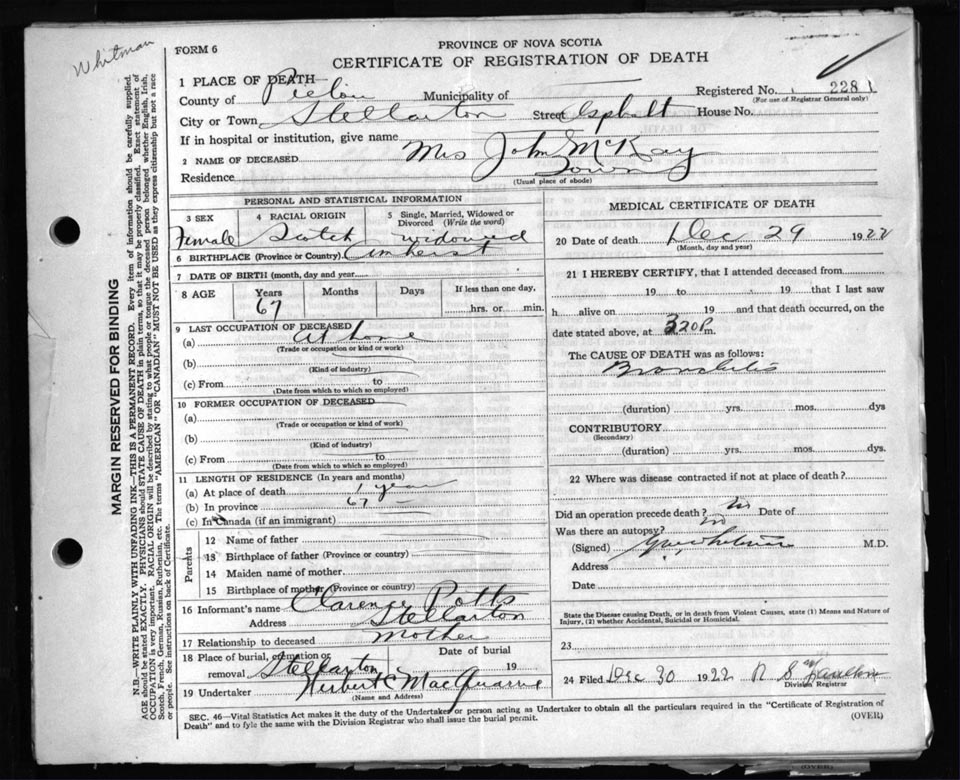 Whitman
FORM 6
PROVINCE OF NOVA SCOTIA
CERTIFICATE OF REGISTRATION OF DEATH
1 PLACE OF DEATH
County of Pictou Municipality of
Registered No. 228
(For use of Registrar General only)
City or Town Stellarton Street Asphalt House No.
If in hospital or institution, give name
2 NAME OF DECEASED Mrs John McKay
Residence Town
(Usual place of abode)
PERSONAL AND STATISTICAL INFORMATION
3 SEX Female
4 RACIAL ORIGIN Scotch
5 Single, Married, Widowed or Divorced (Write the word) widowed
6 BIRTHPLACE (Province or Country) Amherst
7 DATE OF BIRTH (month, day and year)
8 AGE Years 67 Months Days If less than one day, hrs. or min.
9 LAST OCCUPATION OF DECEASED
(a) at home
(Trade or occupation or kind of work)
(b)
(Kind of industry)
(c) From to
(Date from which to which so employed)
10 FORMER OCCUPATION OF DECEASED
(a)
(Trade or occupation or kind of work)
(b)
(Kind of industry)
(c) From to
(Date from which to which so employed)
11 LENGTH OF RESIDENCE (In years and months)
(a) At place of death 1 year
(b) In province 67
(c) In Canada (if an immigrant)
Parents
12 Name of father
13 Birthplace of father (Province or country)
14 Maiden name of mother
15 Birthplace of mother (Province or country)
16 Informant's name Clarence Potts
Address Stellarton
17 Relationship to deceased mother
18 Place of burial, cremation or removal Stellarton
Date of burial 19
19 Undertaker Herbert MacQuarrie
(Name and Address)
MEDICAL CERTIFICATE OF DEATH
20 Date of death Dec 29 1922
(Month, day and year)
21 I HEREBY CERTIFY, that I attended deceased from
19 to 19 that I last saw
h alive on 19 and that death occurred, on the
date stated above, at 320 P m.
The CAUSE OF DEATH was as follows:
Bronchitis
(duration) yrs. mos. dys
CONTRIBUTORY
(Secondary)
(duration) yrs. mos. dys.
22 Where was disease contracted if not at place of death?
Did an operation precede death? no Date of
Was there an autopsy? no
(Signed) M.D.
Address
Date
State the Disease causing Death, or in death from Violent Causes, state (1) Means and Nature of
Injury, (2) whether Accidental, Suicidal or Homicidal.
23
24 Filed Dec 30 1922
Division Registrar
SEC. 46—Vital Statistics Act makes it the duty of the Undertaker or person acting as Undertaker to obtain all the particulars required in the "Certificate of Registration of
Death" and to fyle the same with the Division Registrar who shall issue the burial permit.
(OVER)
MARGIN RESERVED FOR BINDING
N.B.—WRITE PLAINLY WITH UNFADING INK—THIS IS A PERMANENT RECORD. Every item of information should be carefully supplied.
AGE should be stated EXACTLY. PHYSICIANS should STATE CAUSE OF DEATH in plain terms, so that it may be properly classified. Exact statement of
OCCUPATION is very important. RACIAL ORIGIN will be described by stating to what people or tongue the deceased person belonged whether English, Irish,
Scotch, French, German, Russian, Ruthenian, etc. The terms "AMERICAN" or "CANADIAN" MUST NOT BE USED as they express citizenship but not a race
or people. See instructions on back of Certificate.
(OVER)